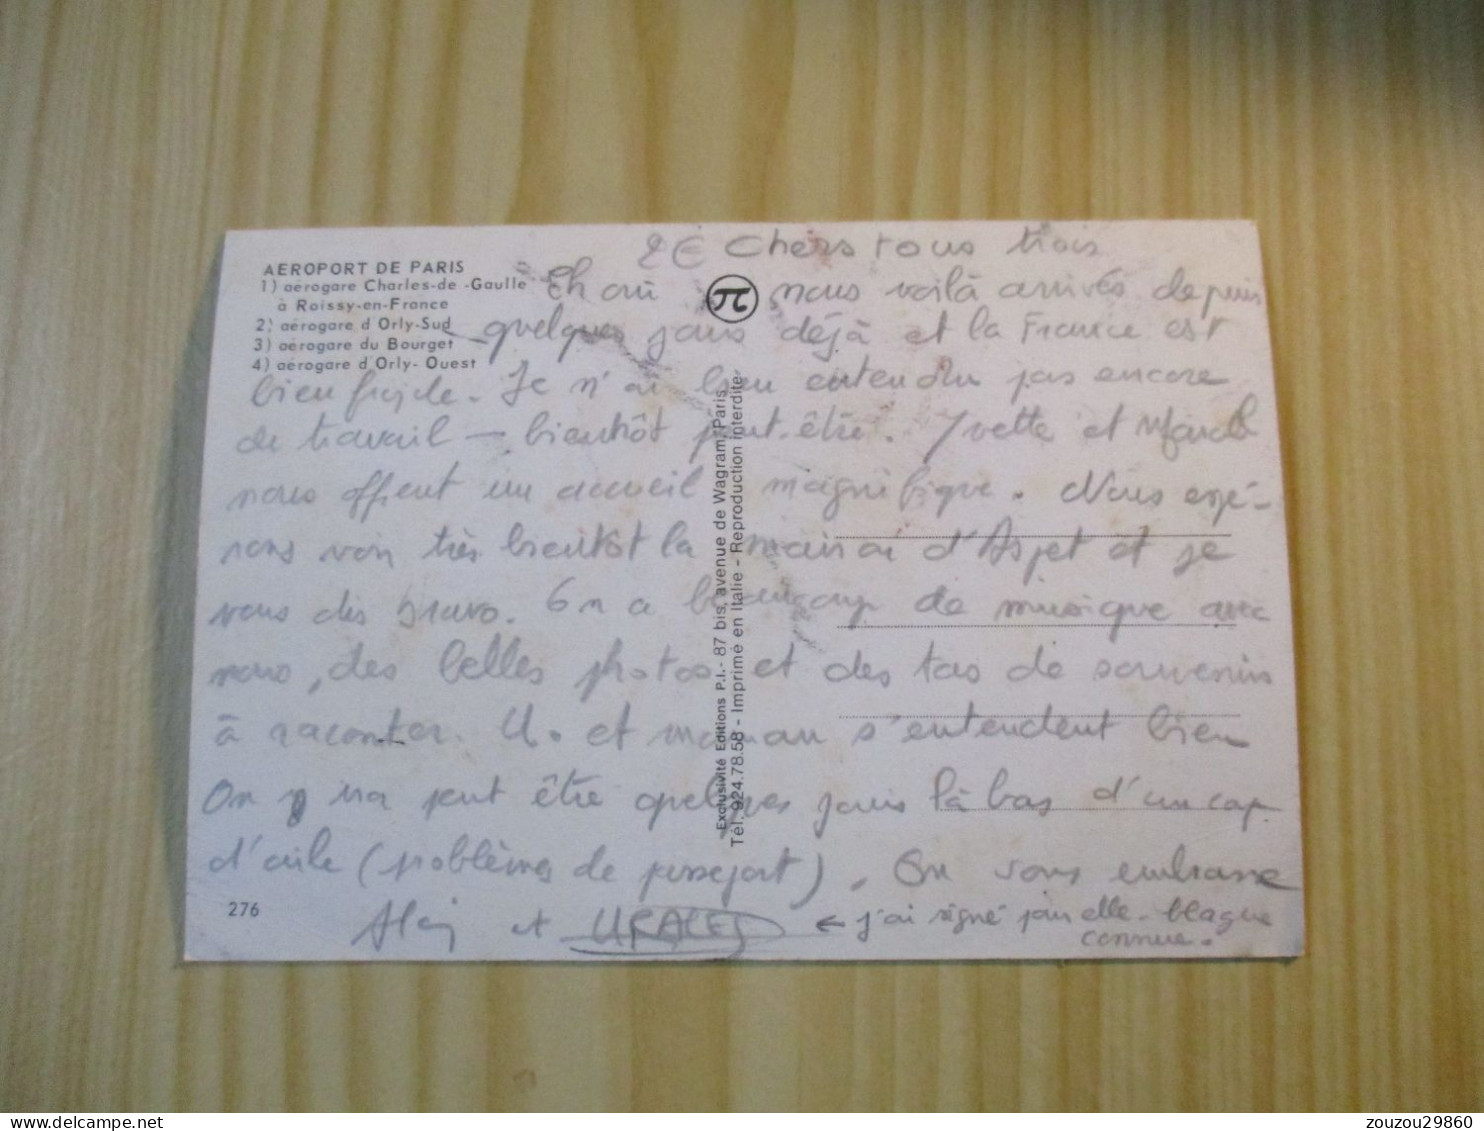 AEROPORT DE PARIS
1) aérogare Charles-de-Gaulle
à Roissy-en-France
2) aérogare d'Orly-Sud
3) aérogare du Bourget
4) aérogare d'Orly-Ouest
2€ Chers tous trois
Eh oui nous voilà arrivés depuis
quelques jours déjà et la France est
bien froide. Je n'ai bien entendu pas encore
de travail — bientôt peut-être. Yvette et Marcel
nous offrent un accueil magnifique. Nous espé-
rons voir très bientôt la maison d'Aspet et je
vous dis bravo. On a beaucoup de musique avec
nous, des belles photos et des tas de souvenirs
à raconter. U. et maman s'entendent bien
On y va peut être quelques jours là bas d'un cap
d'aile (problèmes de passeport). On vous embrasse
Alain et URACES ← j'ai signé pour elle. blague
connue.
Exclusivité Editions P.I. - 87 bis, avenue de Wagram, Paris
Tél. 924.78.58 - Imprimé en Italie - Reproduction interdite
276
zouzou29860